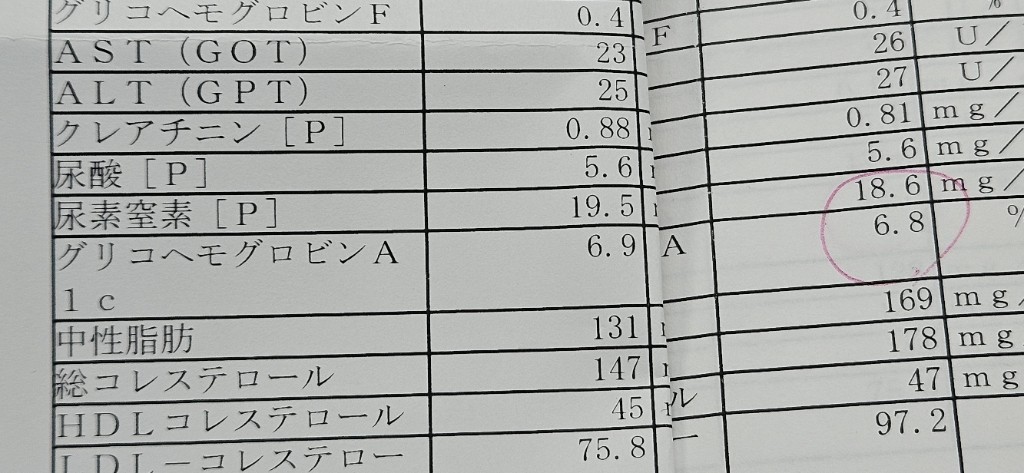 グリコヘモグロビンF 0.4 0.4 %
AST(GOT) 23 F 26 U/
ALT(GPT) 25 27 U/
クレアチニン[P] 0.88 0.81 mg/
尿酸[P] 5.6 5.6 mg/
尿素窒素[P] 19.5 18.6 mg/
グリコヘモグロビンA 6.9 A 6.8 %
1c
中性脂肪 131 169 mg/
総コレステロール 147 178 mg
HDLコレステロール 45 ル 47 mg
LDL−コレステロー 75.8 ー 97.2